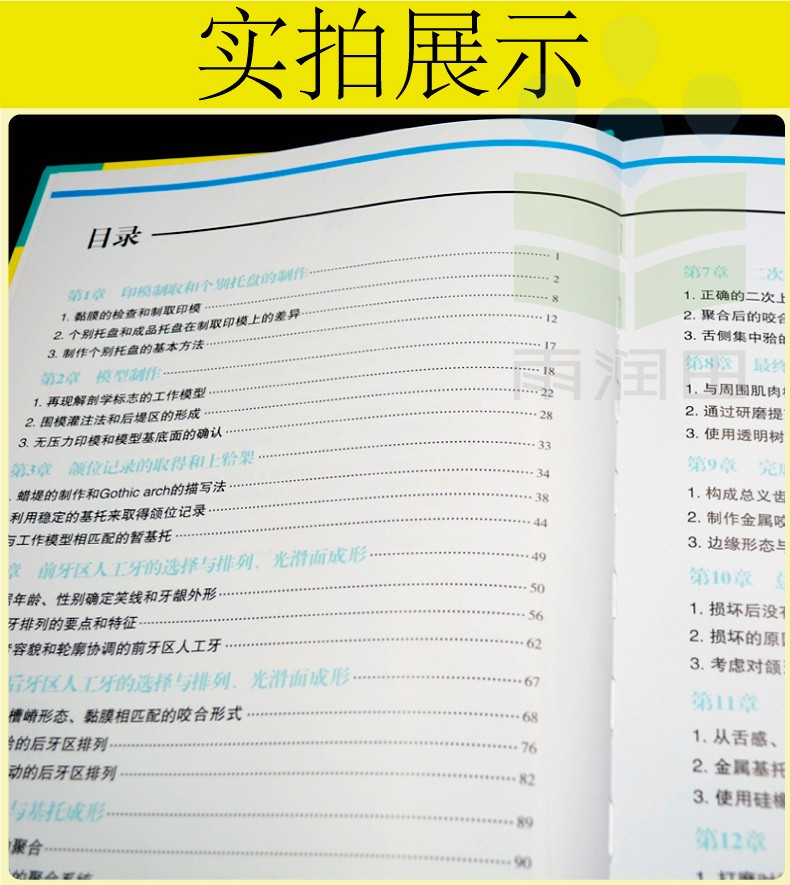 实拍展示
目录
第1章 印模制取和个别托盘的制作 1
1. 黏膜的检查和制取印模 2
2. 个别托盘和成品托盘在制取印模上的差异 8
3. 制作个别托盘的基本方法 12
第2章 模型制作 17
1. 再现解剖学标志的工作模型 18
2. 围模灌注法和后堤区的形成 22
3. 无压力印模和模型基底面的确认 28
第3章 颌位记录的取得和上𬌗架 33
. 蜡堤的制作和Gothic arch的描写法 34
利用稳定的基托来取得颌位记录 38
与工作模型相匹配的暂基托 44
章 前牙区人工牙的选择与排列、光滑面成形 49
年龄、性别确定笑线和牙龈外形 50
牙排列的要点和特征 56
容貌和轮廓协调的前牙区人工牙 62
后牙区人工牙的选择与排列、光滑面成形 67
槽嵴形态、黏膜相匹配的咬合形式 68
的后牙区排列 76
动的后牙区排列 82
与基托成形 89
聚合 90
的聚合系统
第7章 二次
1. 正确的二次上
2. 聚合后的咬合
3. 舌侧集中𬌗的
第8章 最终
1. 与周围肌肉
2. 通过研磨提
3. 使用透明树
第9章 完
1. 构成总义齿
2. 制作金属咬
3. 边缘形态与
第10章
1. 损坏后没有
2. 损坏的原因
3. 考虑对颌
第11章
1. 从舌感、
2. 金属基托
3. 使用硅橡
第12章
1. 打磨
雨润田